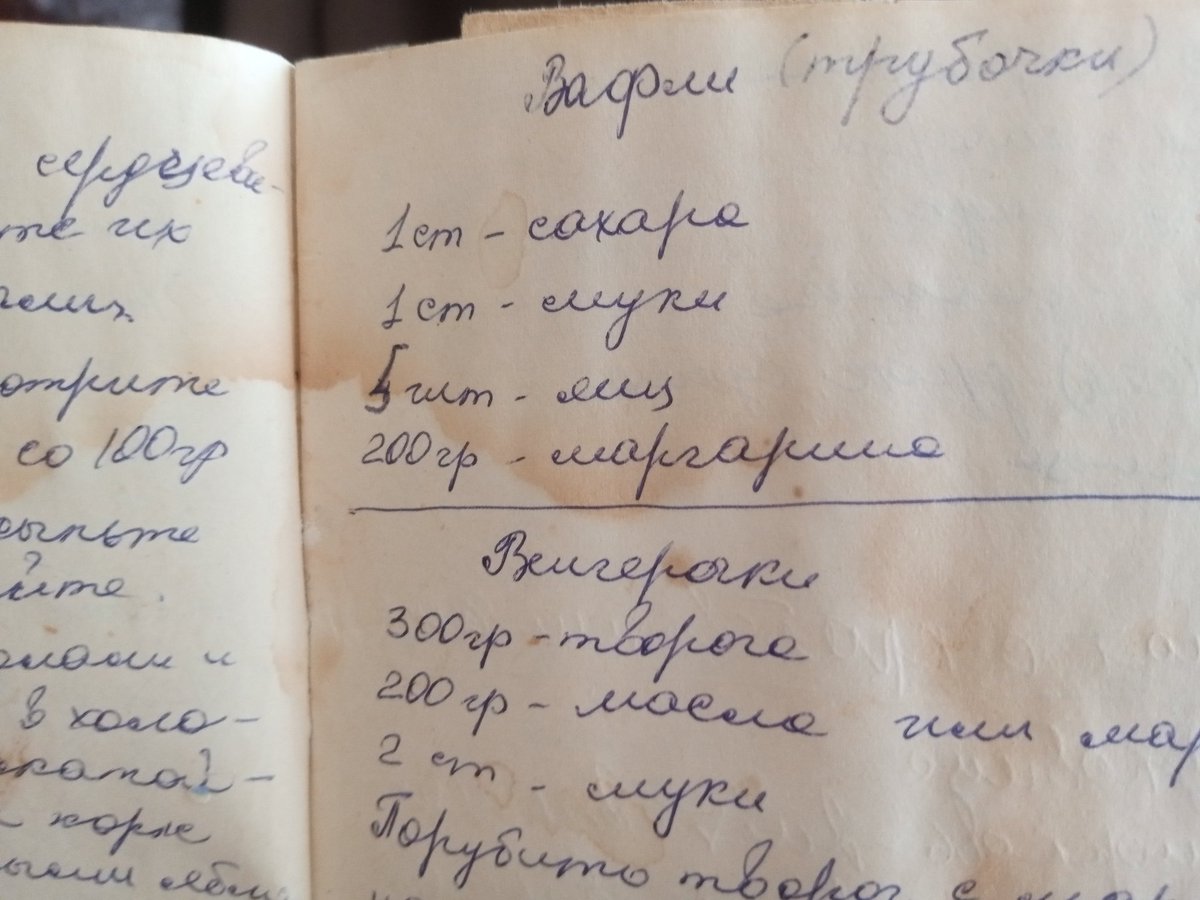 сердцеви-
их
отрите
со 100гр
сыпьте
йте.
и
в холо-
корж
Вафли (трубочки)
1ст - сахара
1ст - муки
5 шт - яиц
200гр - маргарина
Венгерочки
300гр - творога
200гр - масла или мар
2 ст - муки
Порубить творог с мар